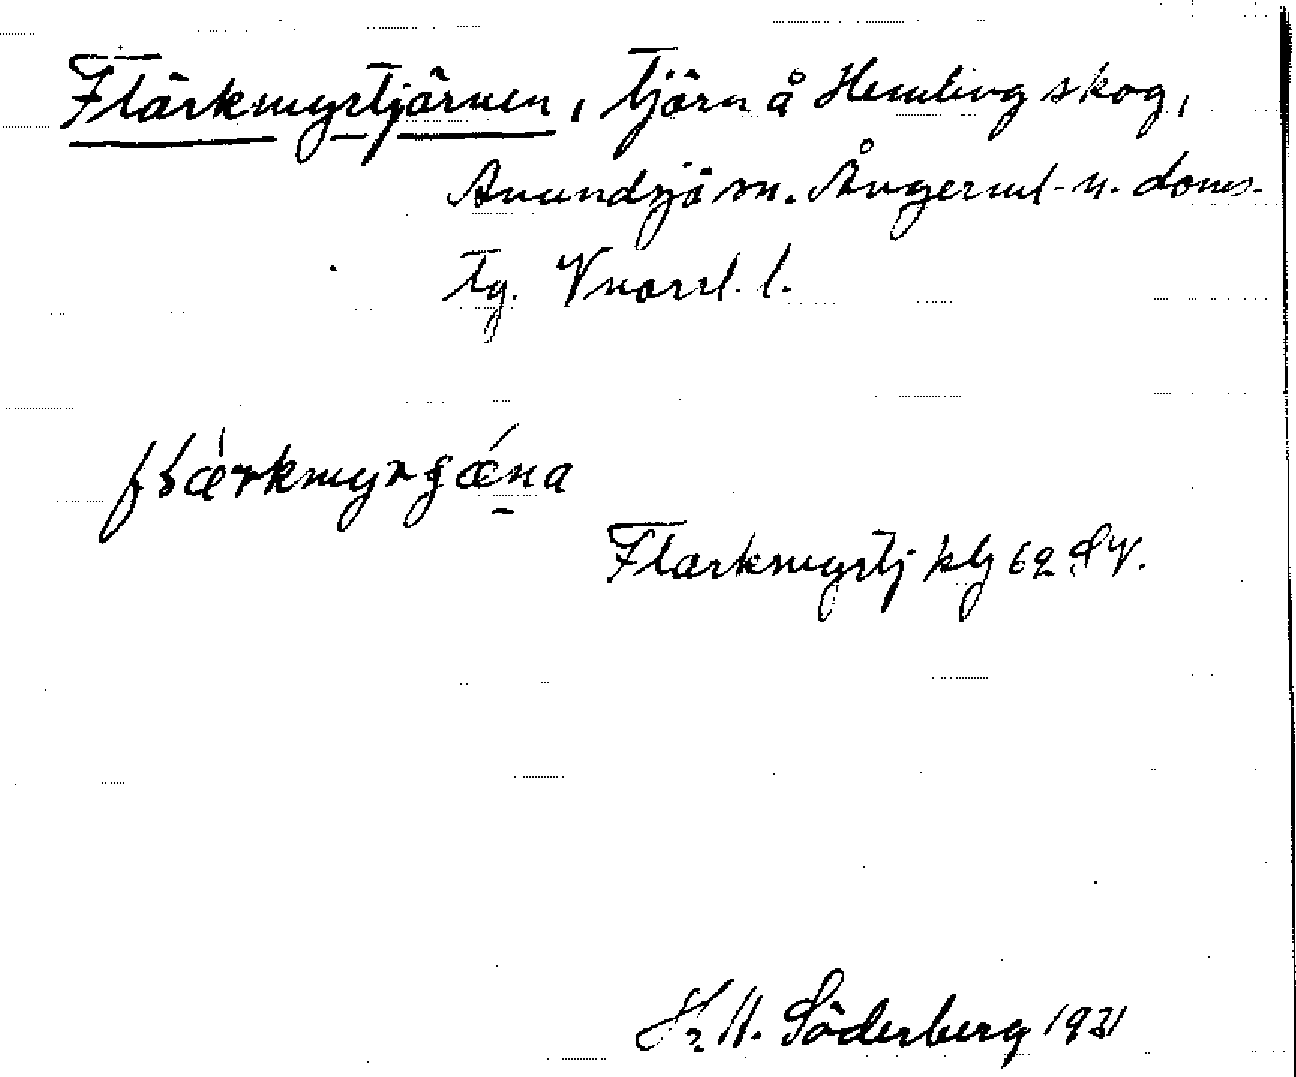 Flärkmyrtjärnen, tjärn å Hemling skog,
Anundsjö sn. Ångerml. n. doms.
tg. Vnorrl. l.
flærkmyrʒǽna
Flarkmyrtj kbl 62 SV.
H. Söderberg 1931